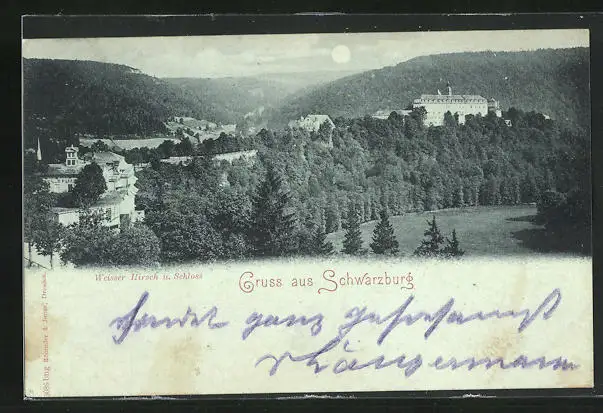 Weisser Hirsch u. Schloss
Gruss aus Schwarzburg
sendet ganz gehorsamst
Längermann
Römmler & Jonas, Dresden.